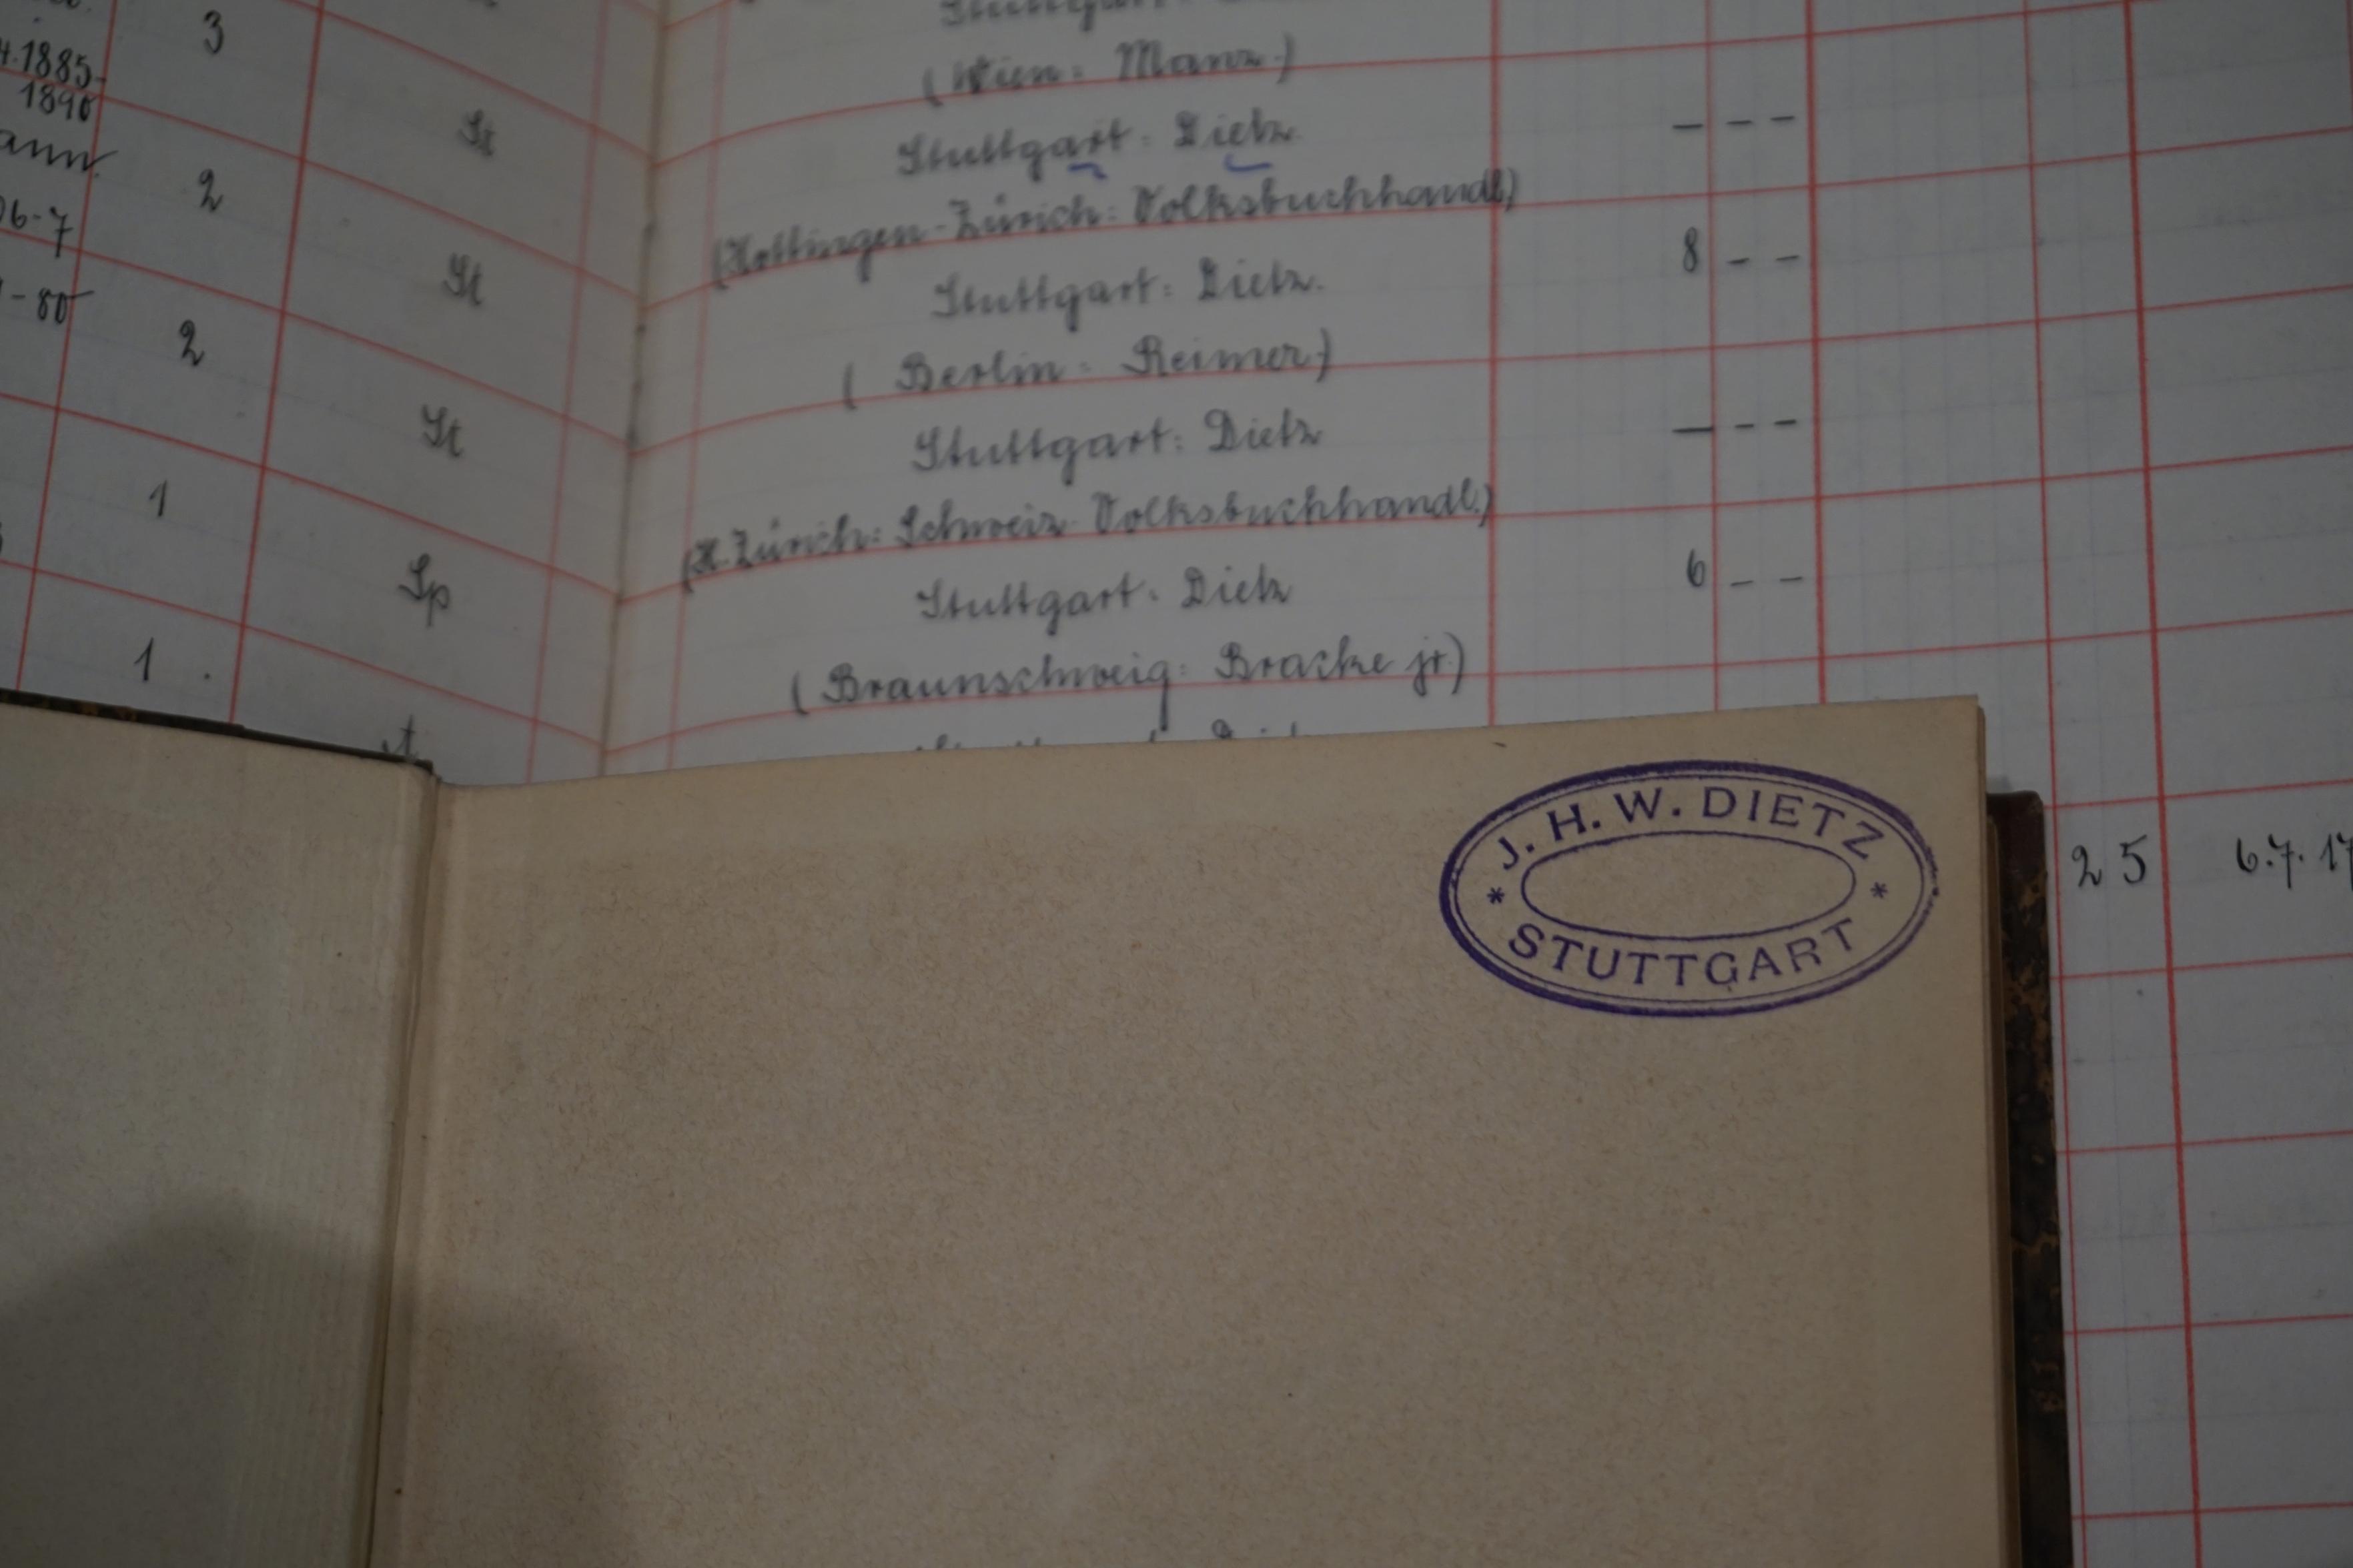 3
4.1885-
1890
2
06-7
-80
2
1
1
St
St
St
Sp
(Wien: Manz.)
Stuttgart: Dietz. — - -
(Hottingen-Zürich: Volksbuchhandl.)
Stuttgart: Dietz. 8 - -
(Berlin: Reimer.)
Stuttgart: Dietz — - -
(H. Zürich: Schweiz. Volksbuchhandl.)
Stuttgart. Dietz 6 - -
(Braunschweig: Bracke jr.)
25 6.7.17
J. H. W. DIETZ
* *
STUTTGART